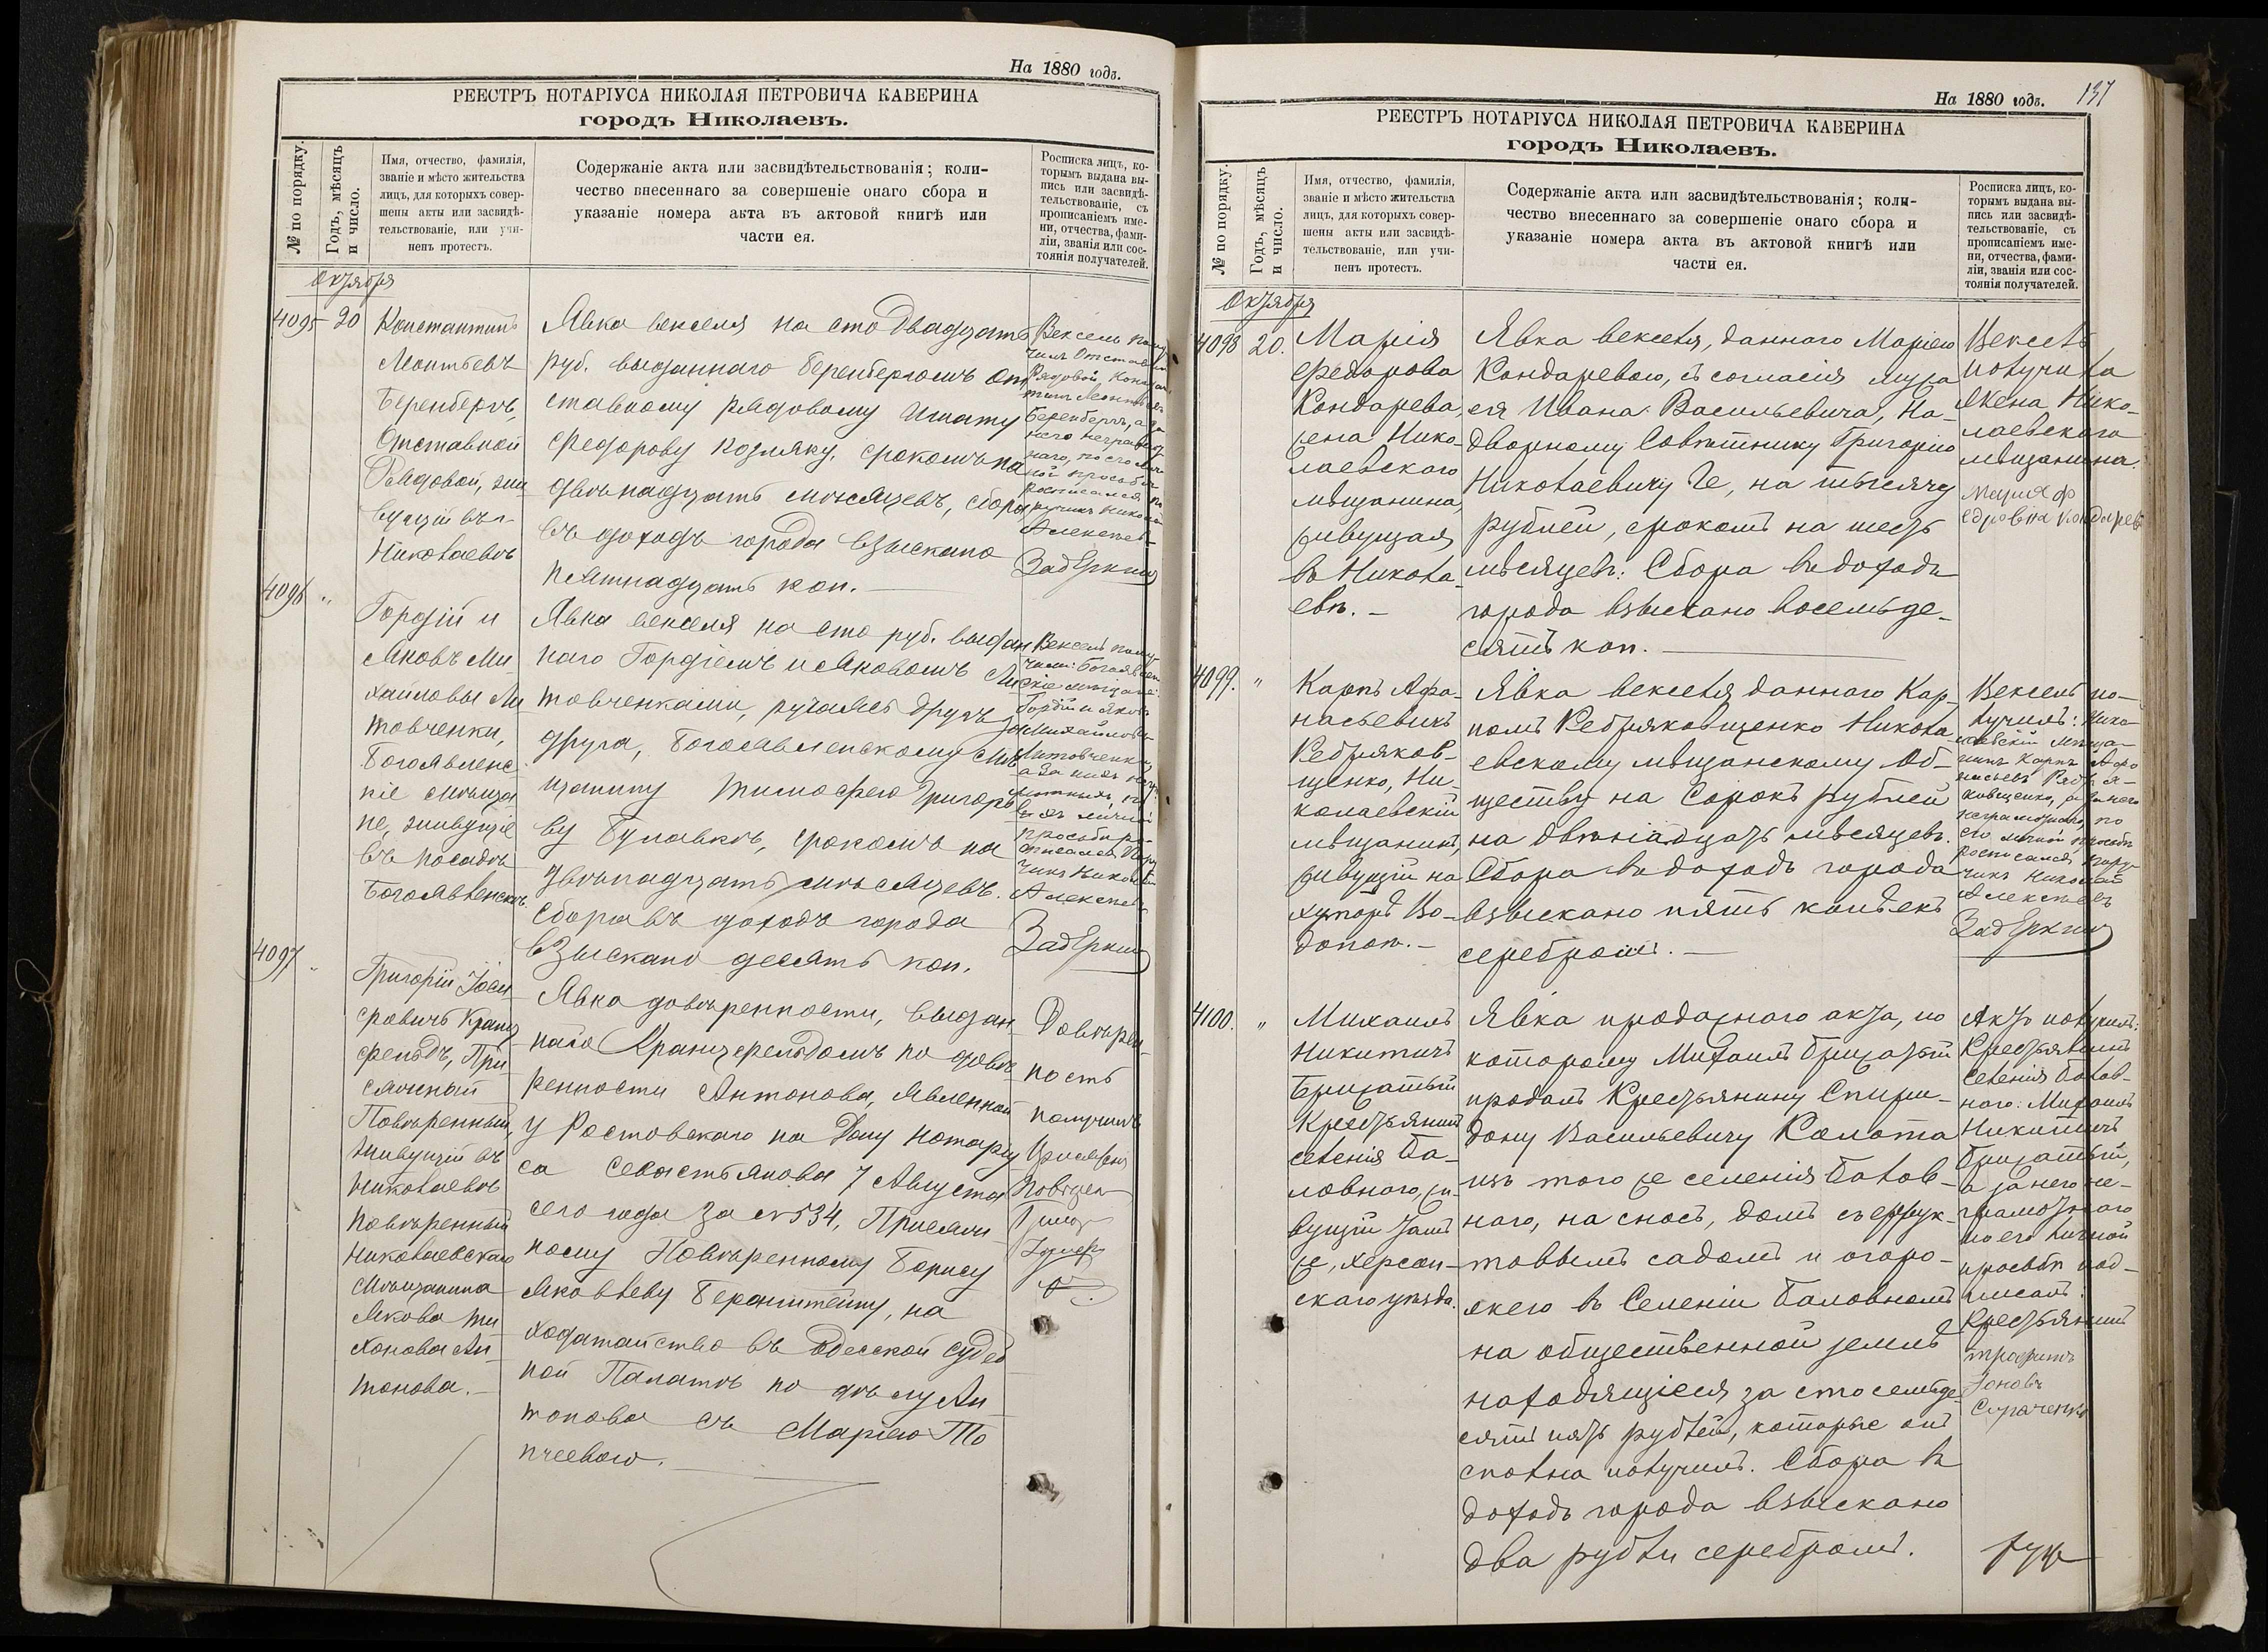 На 1880 годъ.
РЕЕСТРЪ НОТАРІУСА НИКОЛАЯ ПЕТРОВИЧА КАВЕРИНА
городъ Николаевъ.
№ по порядку.
Годъ, мѣсяцъ
и число.
Имя, отчество, фамилія,
званіе и мѣсто жительства
лицъ, для которыхъ совер-
шены акты или засвидѣ-
тельствованіе, или учи-
ненъ протестъ.
Содержаніе акта или засвидѣтельствованія; коли-
чество внесеннаго за совершеніе онаго сбора и
указаніе номера акта въ актовой книгѣ или
части ея.
Росписка лицъ, ко-
торымъ выдана вы-
пись или засвидѣ-
тельствованіе, съ
прописаніемъ име-
ни, отчества, фами-
ліи, званія или сос-
тоянія получателей.
Октября
4095 20
Константинъ
Леонтьевъ
Беренбергъ,
Отставной
Рядовой, жи
вущій въ г.
Николаевѣ
Явка векселя на сто двадцать
руб. выданнаго Беренбергомъ От
ставному рядовому Игнату
Федорову Козляку, срокомъ на
двѣнадцать мѣсяцевъ, сбора
въ доходъ города взыскано
пятнадцать коп.
Вексель полу
чилъ Отставной
Рядовой, Констан
тинъ Леонтьевъ
Беренбергъ, а за
него неграмот
наго, по его лич
ной просьбѣ
росписался по
ручикъ Николай
Алексѣев
Задеркин
4096 "
Гордій и
Яковъ Ми
хайловы Ли
товченки,
Богоявленс
кіе мѣща
не, живущіе
въ посадѣ
Богоявленскѣ.
Явка векселя на сто руб. выдан
наго Гордіемъ и Яковомъ Ли
товченками, ручаясь другъ за
друга, Богоявленскому мѣ
щанину Тимофею Григорь
еву Булавкѣ, срокомъ на
двѣнадцать мѣсяцевъ.
Сбора въ доходъ города
взыскано десять коп.
Вексель полу
чили: Богоявленс
кіе мѣщане:
Гордій и Яковъ
Михайловы
Литовченки,
а за нихъ негра
мотныхъ, по
ихъ личной
просьбѣ ро
списался Пору
чикъ Николай
Алексѣев
Задеркин
4097 "
Григорій Іоси
фовичъ Кранц
фельдъ, При
сяжный
Повѣренный,
живущій въ
Николаевѣ
повѣренный
Николаевскаго
Мѣщанина
Якова Ти
хонова Ан
тонова.
Явка довѣренности, выдан
наго Кранцфельдомъ по довѣ
ренности Антонова, явленной
у Ростовскаго на Дону нотаріу
са Севастьянова 7 Августа
сего года за № 534, Присяж
ному Повѣренному Борису
Яковлеву Беренштейну, на
ходатайство въ Одесской Судеб
ной Палатѣ по дѣлу Ан
тонова съ Маріею То
пчеевою.
Довѣрен-
ность
получилъ
Присяжный
Повѣрен
На 1880 годъ. 137
РЕЕСТРЪ НОТАРІУСА НИКОЛАЯ ПЕТРОВИЧА КАВЕРИНА
городъ Николаевъ.
№ по порядку.
Годъ, мѣсяцъ
и число.
Имя, отчество, фамилія,
званіе и мѣсто жительства
лицъ, для которыхъ совер-
шены акты или засвидѣ-
тельствованіе, или учи-
ненъ протестъ.
Содержаніе акта или засвидѣтельствованія; коли-
чество внесеннаго за совершеніе онаго сбора и
указаніе номера акта въ актовой книгѣ или
части ея.
Росписка лицъ, ко-
торымъ выдана вы-
пись или засвидѣ-
тельствованіе, съ
прописаніемъ име-
ни, отчества, фами-
ліи, званія или сос-
тоянія получателей.
Октября
4098 20.
Марія
Федорова
Кондарева,
жена Нико-
лаевскаго
мѣщанина,
живущая
въ Никола-
евѣ.
Явка векселя, даннаго Маріею
Кондаревою, съ согласія мужа
ея Ивана Васильевича, На-
дворному Совѣтнику Григорію
Николаевичу Ге, на тысячу
рублей, срокомъ на шесть
мѣсяцевъ. Сбора въ доходъ
города взыскано восемьде-
сятъ коп.
Вексель
получила
жена Нико-
лаевскаго
мѣщанина.
Мария Ф
едровна Кондарев
4099. "
Карпъ Афа-
насьевичъ
Ребряков-
щенко, Ни-
колаевскій
мѣщанинъ,
живущій на
хуторѣ Во-
допоѣ.
Явка векселя даннаго Кар-
помъ Ребряковщенко Никола
евскому мѣщанскому Об-
ществу на сорокъ рублей
на двѣнадцать мѣсяцевъ.
Сбора въ доходъ города
взыскано пять копѣекъ
серебромъ.
Вексель по-
лучилъ: Нико-
лаевскій мѣща-
нинъ Карпъ Афа
насьевъ Ребря-
ковщенко, а за него
неграмотнаго, по
его личной просьбѣ
росписался пору-
чикъ Николай
Алексѣевъ
Задеркин
4100. "
Михаилъ
Никитичъ
Брижатый
Крестьянинъ
селенія Ба-
ловнаго, жи-
вущій тамъ
же, Херсон-
скаго уѣзда.
Явка продажнаго акта, по
которому Михаилъ Брижатый
продалъ Крестьянину Спири-
дону Васильевичу Колота
изъ того же селенія Балов-
наго, на сносъ, домъ съ фрук-
товымъ садомъ и огоро-
жею въ Селеніи Баловномъ
на общественной землѣ
находящіеся за сто семьде-
сятъ пять рублей, которые онъ
сполна получилъ. Сбора въ
доходъ города взыскано
два рубли серебромъ.
Актъ получилъ:
Крестьянинъ
селенія Балов-
наго: Михаилъ
Никитичъ
Брижатый,
а за него не-
грамотнаго
по его личной
просьбѣ под-
писалъ:
Крестьянинъ
трофимъ